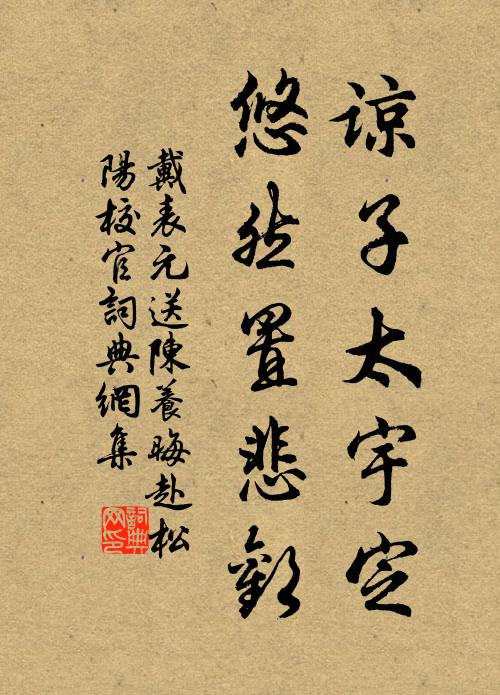 諒子太宇定
悠然置悲歡
戴表元送陳養晦赴松
陽校官詞典網集
詞典
网印